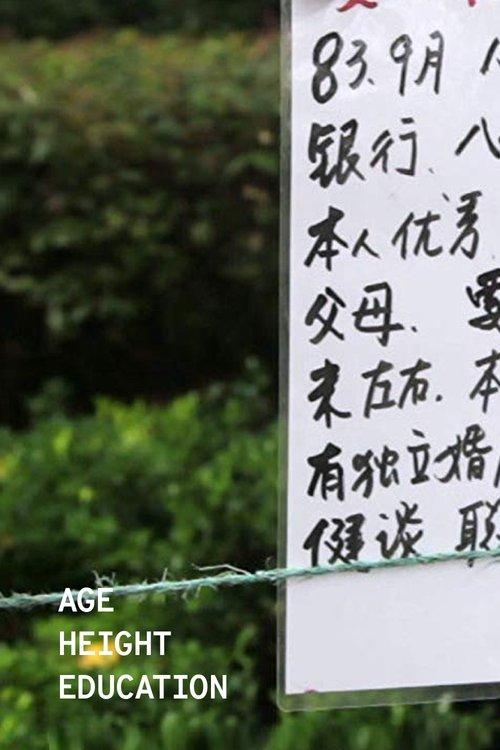 83.9月
银行.
本人优秀
父母. 要
米左右. 本
有独立婚
健谈 联
AGE
HEIGHT
EDUCATION